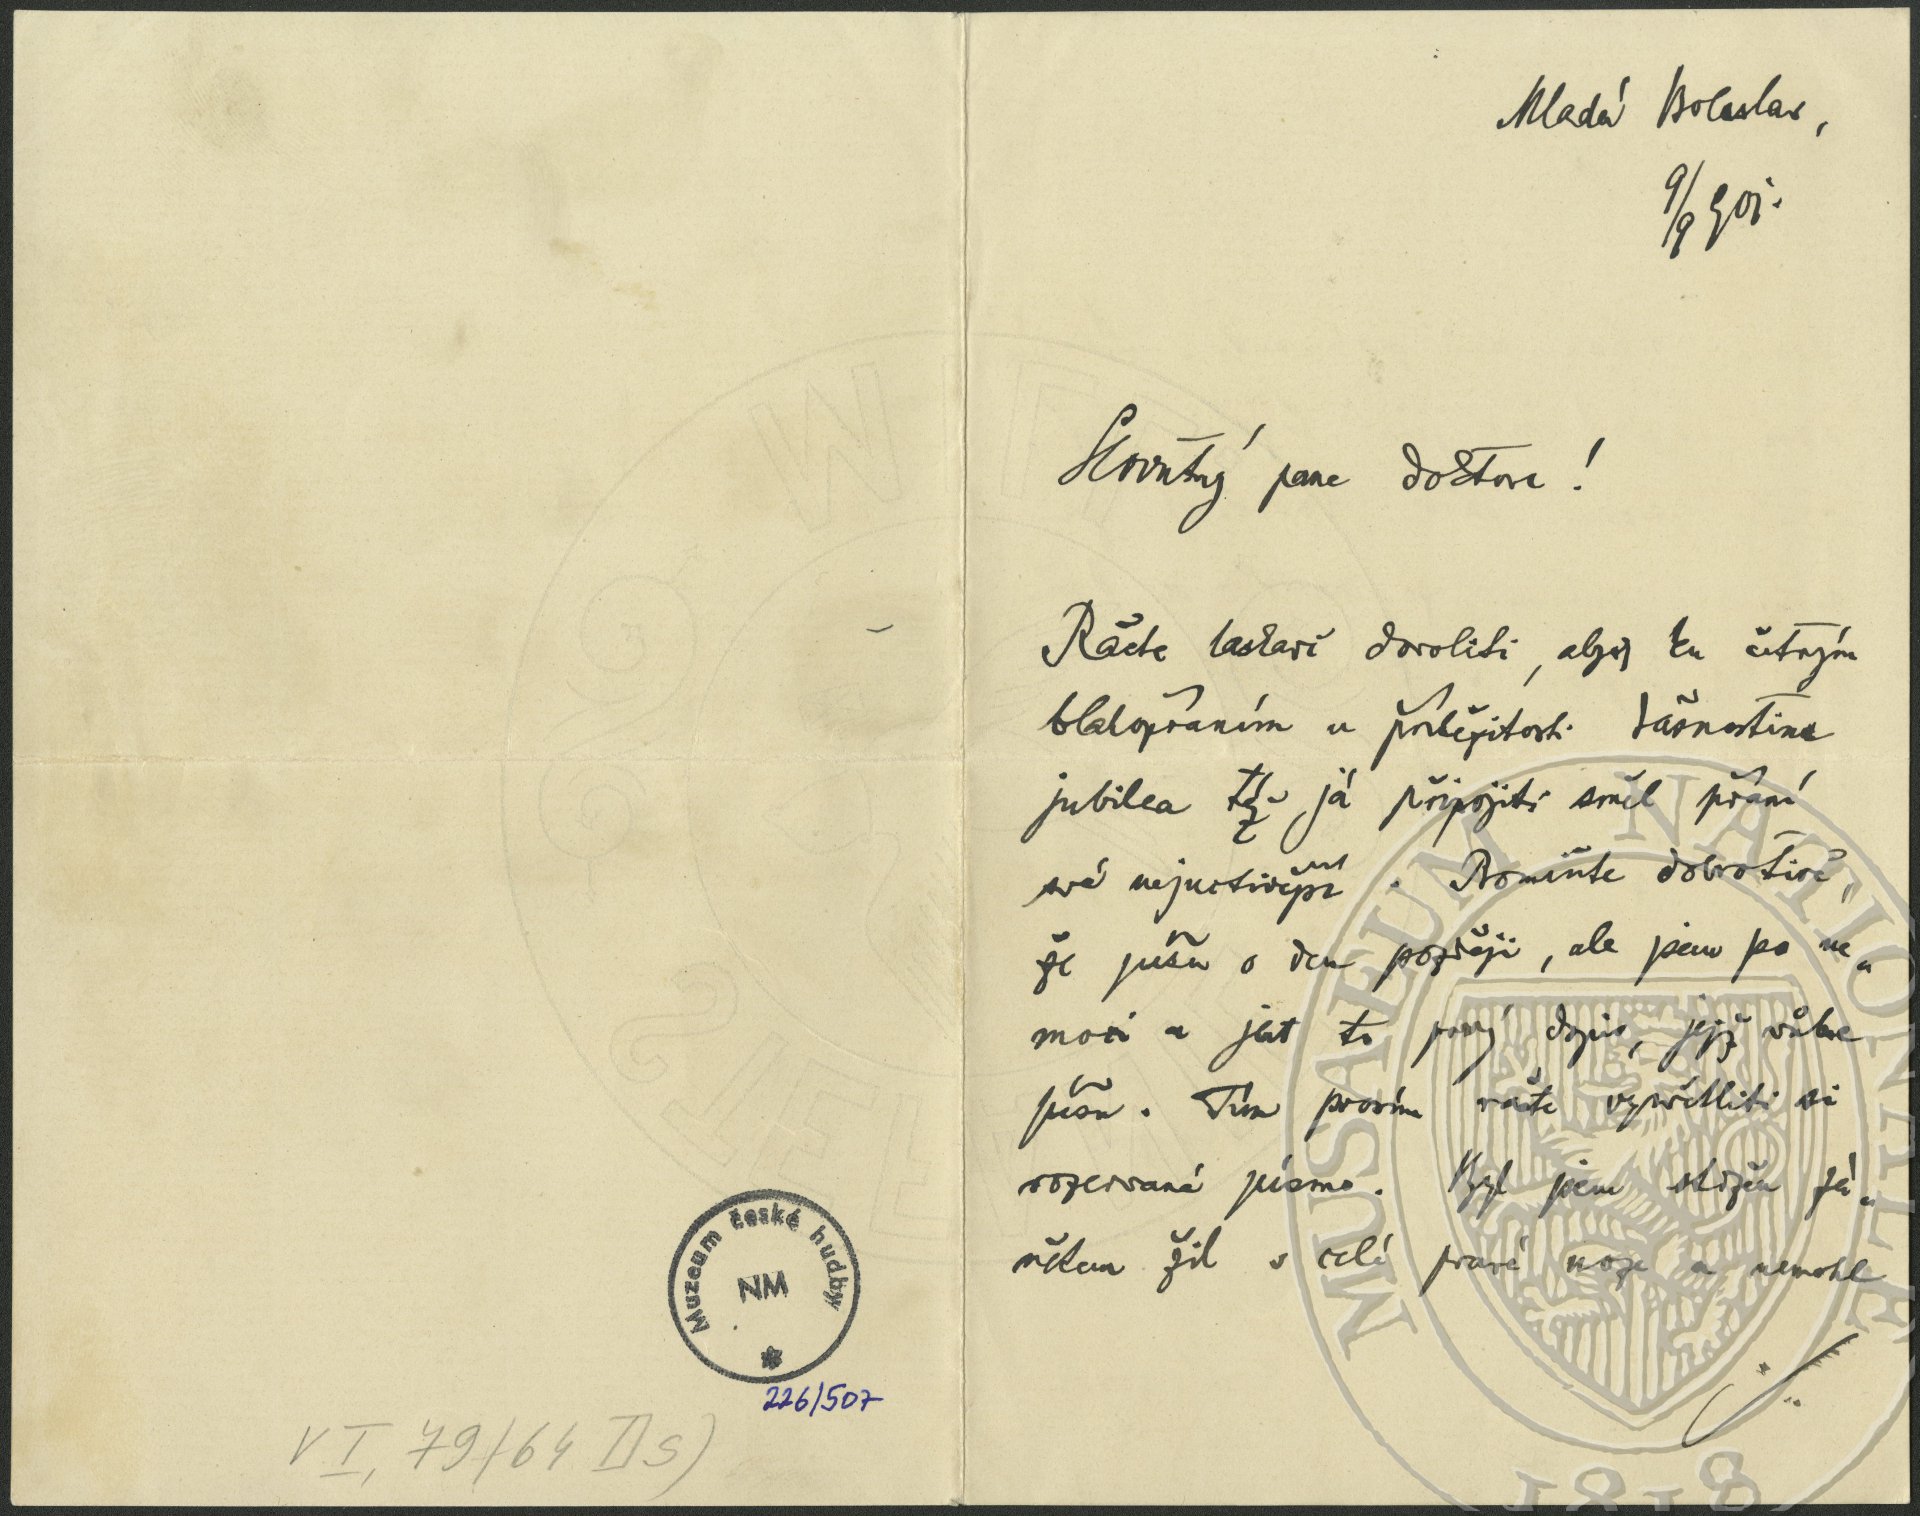 Mladá Boleslav,
9/9 901.
Slovutný pane doktore!
Račte laskavě dovoliti, abych ku četným
blahopřáním u příležitosti Vášnostina
jubilea též já připojiti směl přání
své nejuctivější. Promiňte dobrotivě,
že píšu o den později, ale jsem po ne„
moci a jest to prvý dopis, jejž vůbec
píšu. Tím prosím račte vysvětliti si
rozervané písmo. Byl jsem stižen zá„
nětem žil v celé pravé noze a nemohl
./..
Muzeum české hudby
NM
226/507
VI, 79/64 IIs)
MUSAEUM NATIONALE
1818